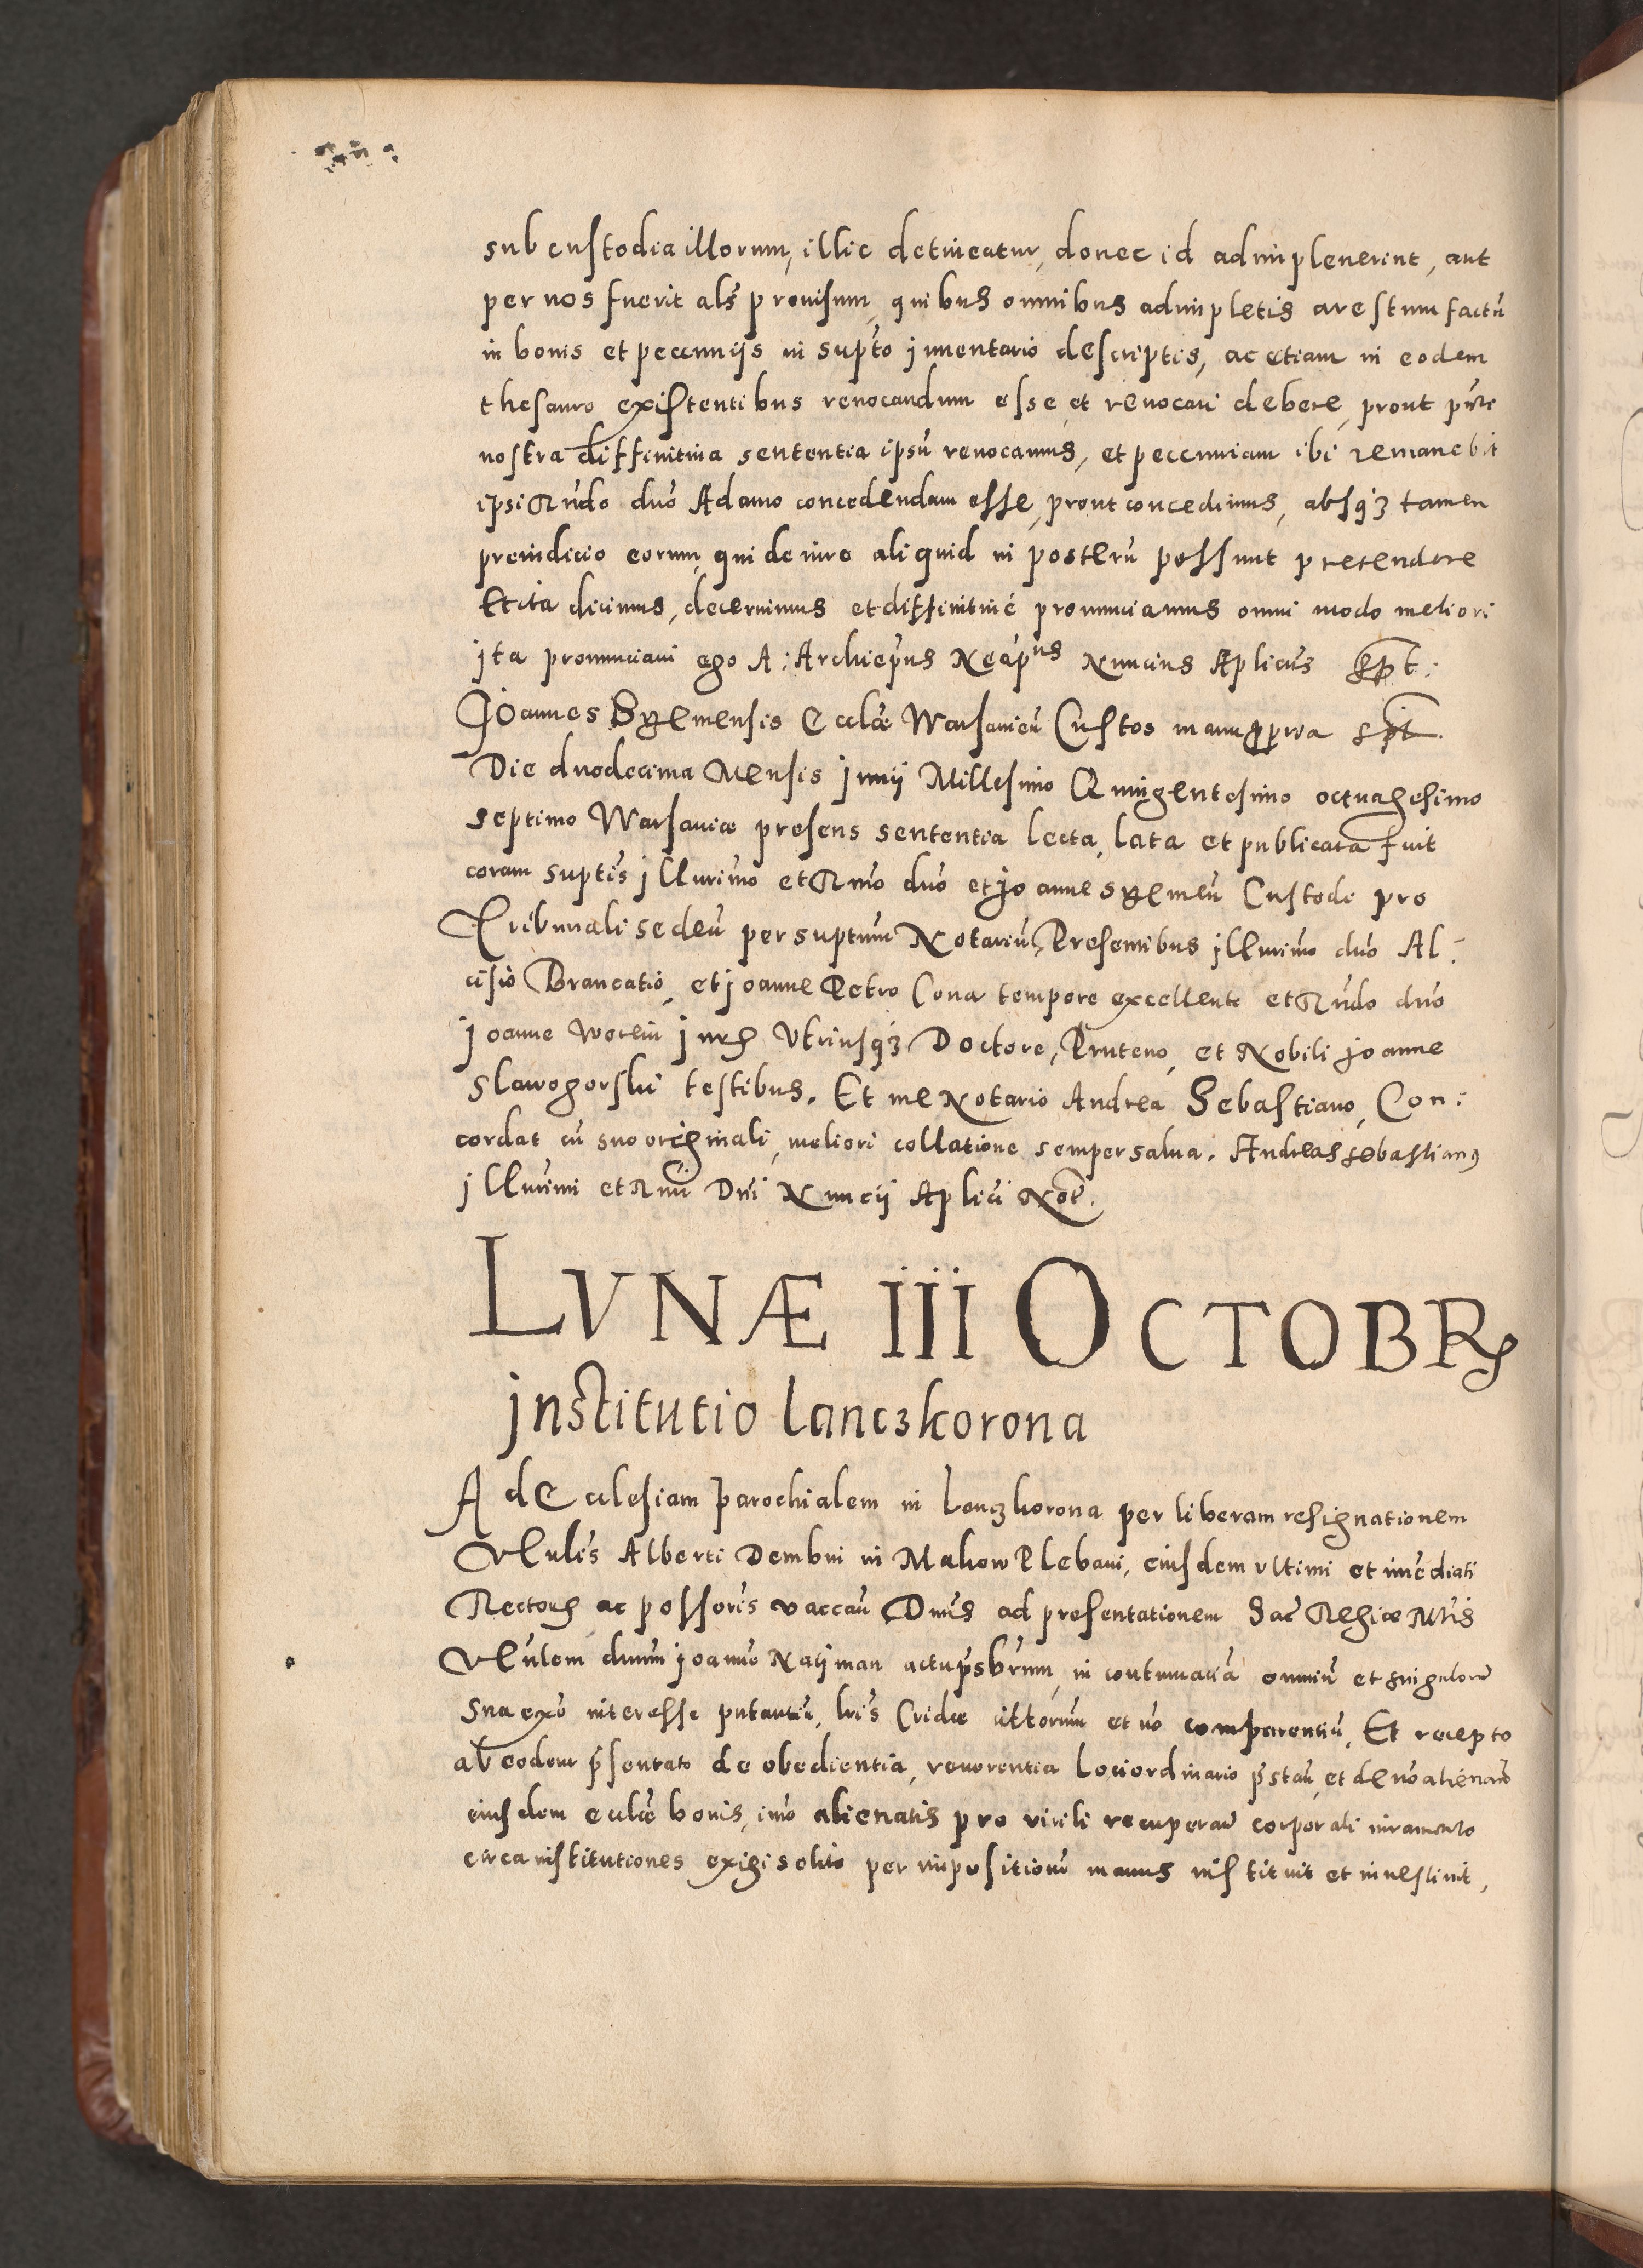 sub custodia illorum, illic detineatur, donec id adimpleuerint, aut
per nos fuerit als̃ prouisum, quibus omnibus adimpletis arestum factũ
in bonis et pecunijs in supto jnuentario descriptis, ac etiam in eodem
thesauro existentibus reuocandum esse, et reuocari debere, prout
nostra diffinitiua sententia ipsũ reuocamus, et pecuniam ibi remanebit
ipsi Rñdo dno Adamo concedendam esse, prout concedimus, absq3 tamen
preiudicio eorum, qui de iure aliquid in posterũ possunt pretendere
Et ita dicimus, decernimus et diffinitiué pronunciamus omni modo meliori
jta pronunciaui ego A: Archiep̃us Neap̃us Nuncius Ap̃licus spt:
Joannes Sremensis Ecclæ Warsauieñ Custos manu ppria spt.
Die duodecima Mensis junij Millesimo Quingentesimo octuagesimo
septimo Warsauiæ presens sententia lecta, lata et publicata fuit
coram suptis jllurimo et Rmo dno et joanne Sremeñ Custode pro
Tribunali sedeñ per suptum Notariũ, Presentibus jllurimo dno Al:
oisio Brancatio, et joanne Petro Cona tempore excellente et Rñdo dno
joanne Worein jurꝭ Vtriusq3 Doctore, Pruteno, et Nobili joanne
Slawogorski testibus. Et me Notario Andrea Sebastiano, Con:
cordat cũ suo originali, meliori collatione semper salua. Andreas Sebastianꝰ
jllurimi et Rmi Dñi Nuncij Ap̃lici Not̃.
LVNÆ III OCTOBRꝭ
jnstitutio lanczkorona
Ad Ecclesiam Parochialem in lanczkorona per liberam resignationem
Vlulis Alberti Dembni in Makow Plebani, eiusdem vltimi et imediati
Rectorꝭ ac possoris vaccañ Dnus ad presentationem Sac̃ Regiæ Mtis
Vlulem dnum joanne Naijman actu psb̃rum, in contumaciã omniũ et singulorũ
Sua exõ interesse putantiũ, lris Cridæ cittorum et nõ comparentiũ, Et recepto
ab eodem p̃sentato de obedientia, reuerentia Loci ordinario p̃stañ, et de nõ alienañ
eiusdem ecclæ bonis, imo alienatis pro virili recuperañ corporali iuramento
circa institutiones exigi solito per impositionẽ manus instituit et inuestiuit,